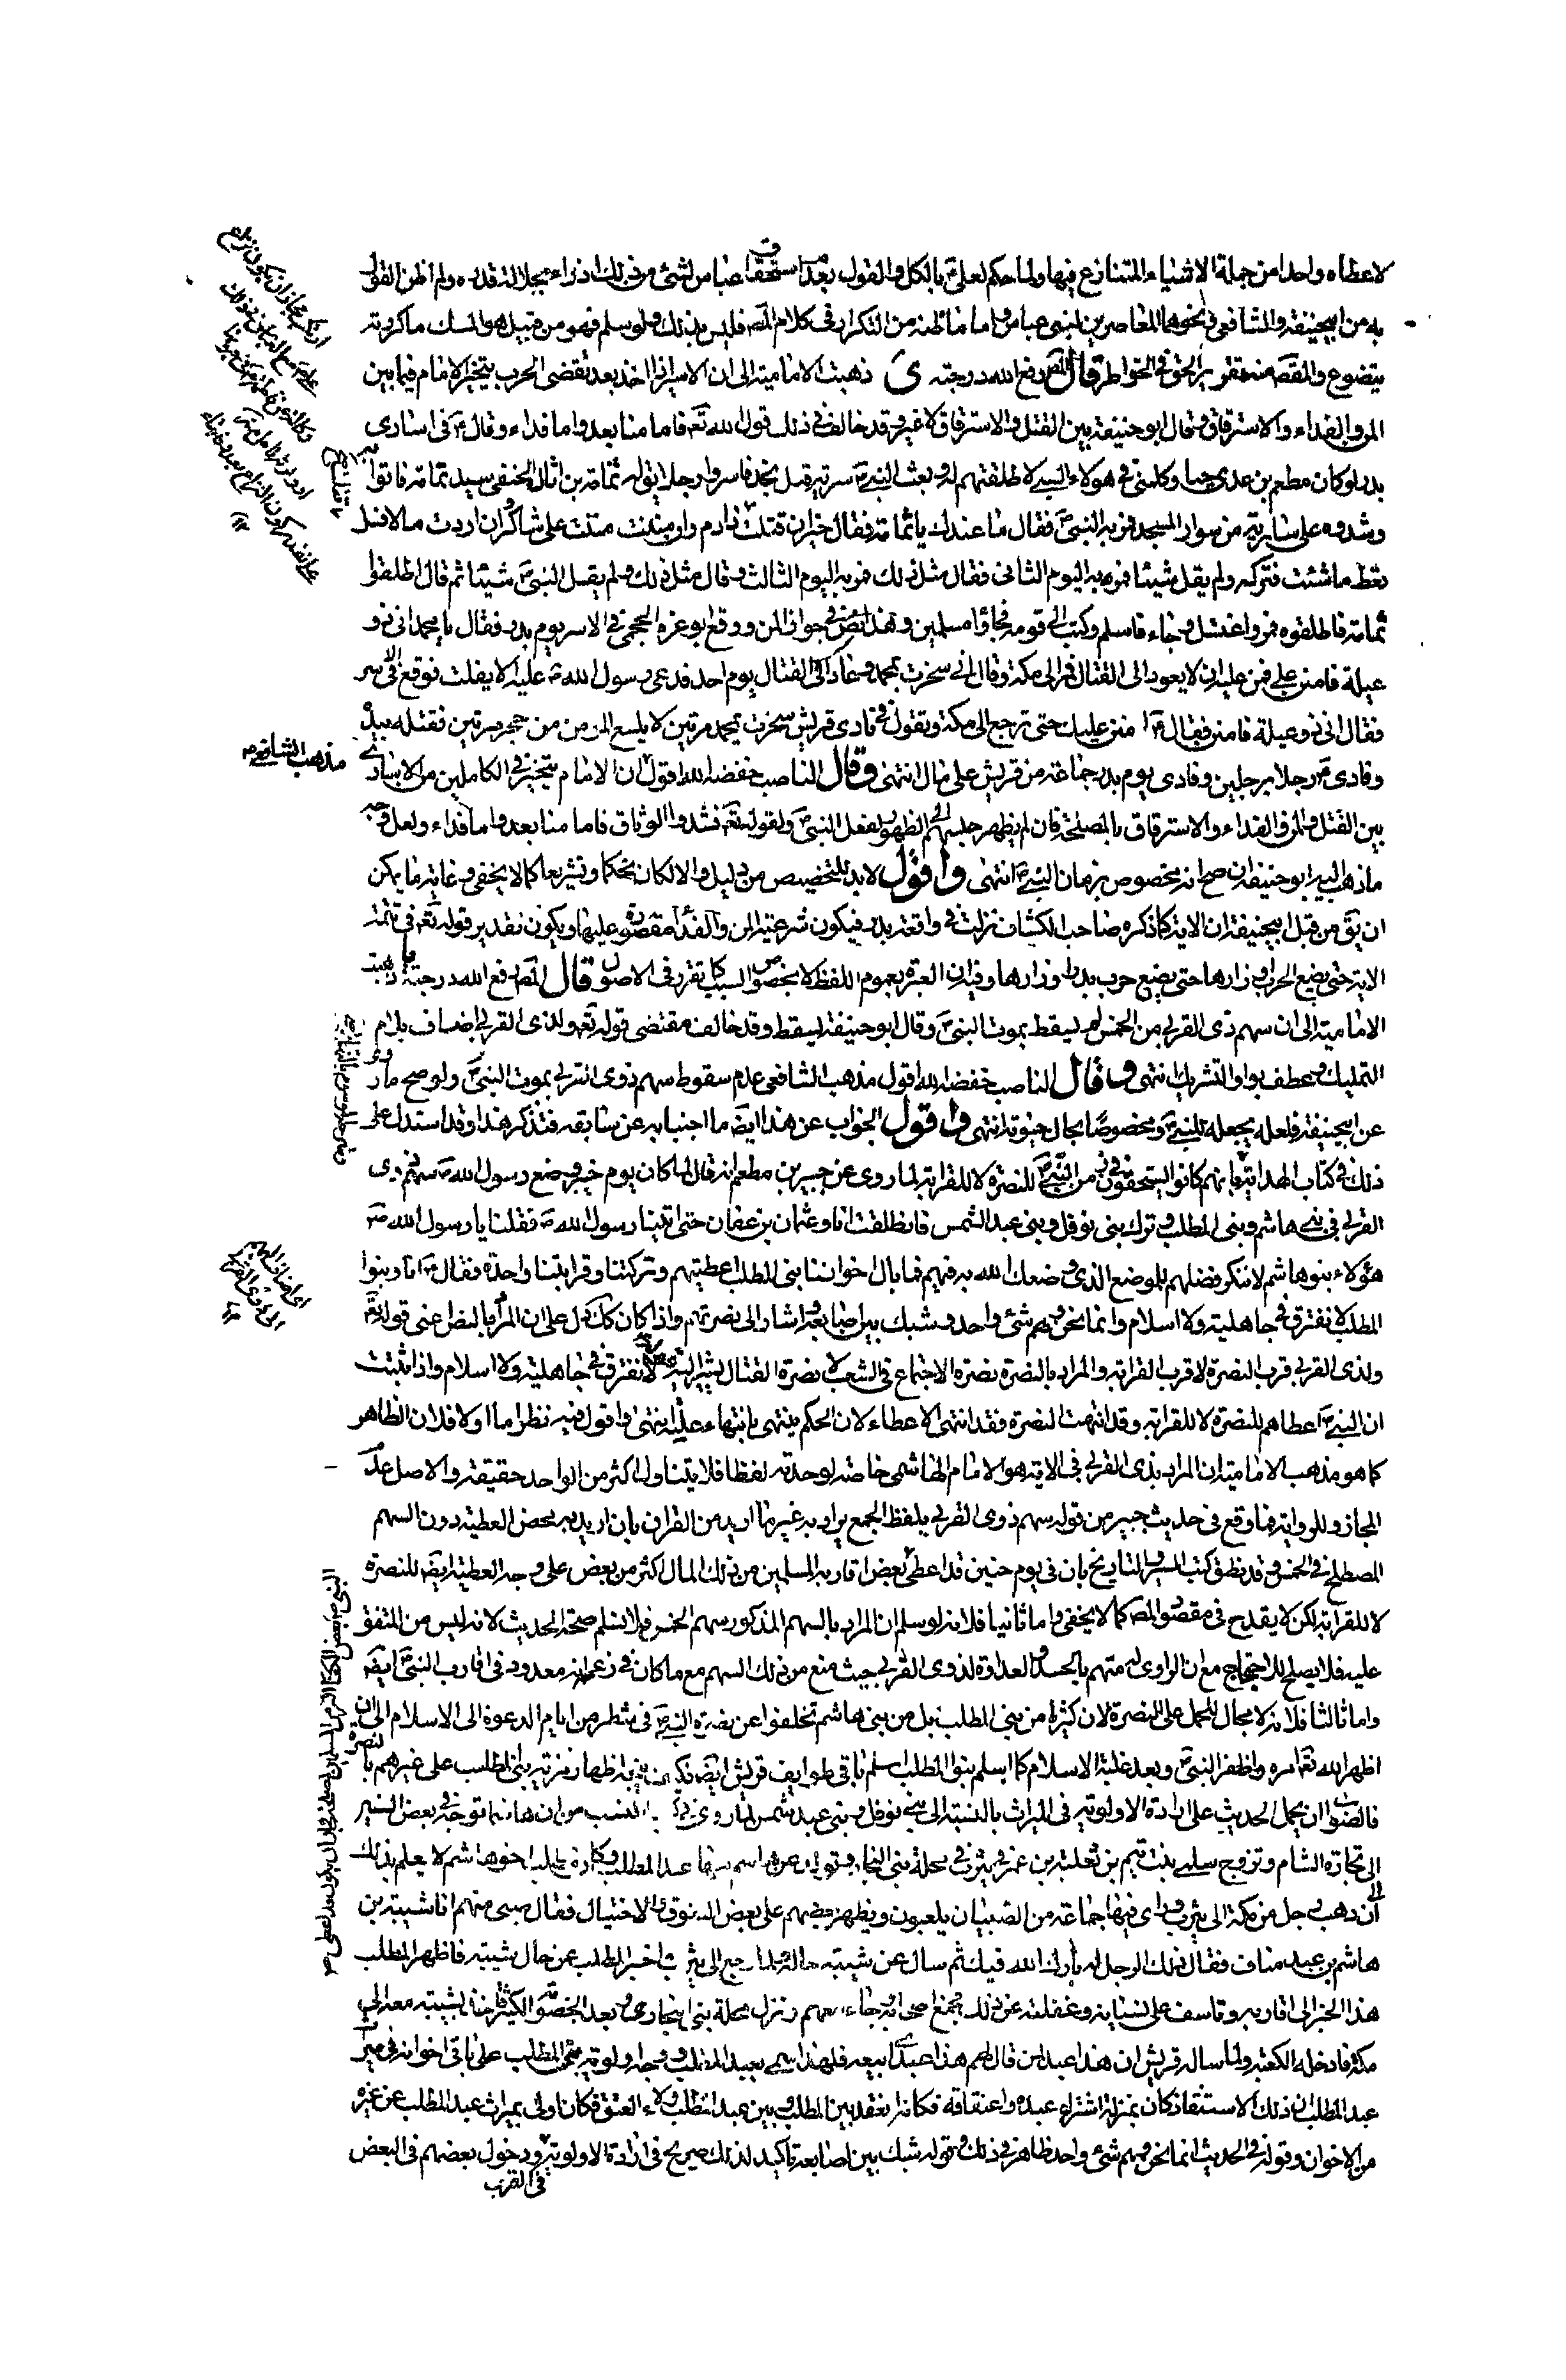 لاعطاه واحدا من جملة الاشياء المتنازع فيها ولما حكم لعلي بالكل والقول بعدم استحقاق عباس لشئ من ذلك ازراء بجلالة قدره ولم اظن القول
به من ابيحنيفة والشافعي ونحوهما المعاصرين لبني عباس واما ما ظنه من التكرار في كلام المص فليس بذلك ولو سلم فهو من قبيل هو المسك ما كررته
يتضوع والمقصد منه تقرير الحق في الخواطر قال المص رفع الله درجته ى ذهبت الامامية الى ان الاسير اذا اخذ بعد تقضى الحرب يتخير الامام فيما بين
المن والفداء والاسترقاق وقال ابو حنيفة بين القتل والاسترقاق لا غير وقد خالف في ذلك قول الله تع فاما منا بعد واما فداء وقال ص في اسارى
بدر لو كان مطعم بن عدي حيا وكلمني في هولاء السبي لاطلقتهم له وبعث النبي ص سرية قبل نجد فاسروا رجلا يق له ثمامة بن اثال الحنفي سيد يمامة فاتوا
وشدوه على سارية من سوار المسجد فمر به النبي ص فقال ما عندك يا ثمامة فقال خير ان قتلت قتلت ذا دم وان مننت مننت على شاكر وان اردت مالا فسل
تعط ما شئت فتركه ولم يقل شيئا فمر به اليوم الثاني فقال مثل ذلك فمر به اليوم الثالث وقال مثل ذلك ولم يقل النبي ص شيئا ثم قال اطلقوا
ثمامة فاطلقوه فمر واغتسل وجاء فاسلم وكتب الى قومه فجاؤا مسلمين وهذا نص في جواز المن ووقع ابو عزة الجمحي في الاسر يوم بدر فقال يا محمد اني ذو
عيلة فامنن علي فمن عليه ان لا يعود الى القتال فمر الى مكة وقال اني سخرت بمحمد وعاد الى القتال يوم احد فدعى رسول الله ص عليه الا يفلت فوقع في الاسر
فقال اني ذو عيلة فامنن فقال ص امنن عليك حتى ترجع الى مكة وتقول في نادي قريش سخرت بمحمد مرتين لا يلسع المؤمن من جحر مرتين فقتله بيده
وفادى ص رجلا برجلين وفادى يوم بدر جماعة من قريش على مال انتهى وقال الناصب خفضه الله اقول ان الامام يتخير في الكاملين من الاسارى
بين القتل والمن والفداء والاسترقاق بالمصلحة فان لم يظهر حبسهم الى الظهور لفعل النبي ص ولقوله تع فشدوا الوثاق فاما منا بعد واما فداء ولعل وجه
ما ذهب اليه ابو حنيفة ان صح انه مخصوص بزمان النبي ص انتهى واقول لابد للتخصيص من دليل والا لكان تحكما وتشريعا كما لا يخفى وغاية ما يمكن
ان يق من قبل ابيحنيفة ان الاية كما ذكره صاحب الكشاف نزلت في واقعة بدر فيكون شرعية المن والفداء مقصورة عليها ويكون تقدير قوله تع في تتمة
الاية حتى يضع الحرب اوزارها حتى يضع حرب بدر اوزارها وفيه ان العبرة بعموم اللفظ لا بخصوص السبب كما تقرر في الاصول قال المص رفع الله درجته يا ذهبت
الامامية الى ان سهم ذى القربى من الخمس لم يسقط بموت النبي ص وقال ابو حنيفة يسقط وقد خالف مقتضى قوله تع ولذى القربى اضاف بلام
التمليك وعطف بواو التشريك انتهى وقال الناصب خفضه الله اقول مذهب الشافعي عدم سقوط سهم ذوى القربى بموت النبي ص ولو صح ما روى
عن ابيحنيفة فلعله يجعله للنبي ص ومخصوصا بحال حيوته انتهى واقول الجواب عن هذا ايضا ما اجبنا به عن سابقه فتذكر هذا وقد استدل على
ذلك في كتاب الهداية بانهم كانوا يستحقون في زمن النبي ص للنصرة لا للقرابة لما روى عن جبير بن مطعم انه قال لما كان يوم خيبر وضع رسول الله ص سهم ذوى
القربى في بني هاشم وبني المطلب وترك بني نوفل وبني عبد الشمس فانطلقت انا وعثمان بن عفان حتى اتينا رسول الله ص فقلنا يا رسول الله ص
هؤلاء بنو هاشم لا ننكر فضلهم للموضع الذى وضعك الله به فيهم فما بال اخواننا بني المطلب اعطيتهم وتركتنا وقرابتنا واحدة فقال ص انا وبنوا
المطلب لا نفترق في جاهلية ولا اسلام وانما نحن وهم شئ واحد وشبك بين اصابعه واشار الى نصرتهم واذا كان كك دل على ان المراد بالنص اعنى قوله تع
ولذى القربى قرب النصرة لا قرب القرابة والمراد بالنصرة نصرة الاجتماع في الشعب لا نصرة القتال يشير اليه قوله ص لا نفترق في جاهلية ولا اسلام واذا ثبت
ان النبي ص اعطاهم للنصرة لا للقرابة وقد انتهت النصرة فقد انتهى الاعطاء لان الحكم ينتهى بانتهاء علته انتهى واقول فيه نظر اما اولا فلان الظاهر
كما هو مذهب الامامية ان المراد بذى القربى في الاية هو الامام الهاشمي خاصة لوحدته لفظا فلا يتناول اكثر من الواحد حقيقة والاصل عدم
المجاز وللرواية فما وقع في حديث جبير من قوله سهم ذوى القربى بلفظ الجمع يراد به غير ما اريد من القران بان اريد به محض العطية دون السهم
المصطلح في الخمس وقد نطق كتب السير والتاريخ بان في يوم حنين قد اعطى بعض اقاربه المسلمين من ذلك المال اكثر من بعض على وجه العطية ايضا للنصرة
لا للقرابة لكن لا يقدح في مقصود المص كما لا يخفى واما ثانيا فلانه لو سلم ان المراد بالسهم المذكور سهم الخمس فلا نسلم صحة الحديث لانه ليس من المتفق
عليه فلا يصلح للاحتجاج مع ان الراوى له متهم بالحسد والعداوة لذوى القربى حيث منع من ذلك السهم مع ما كان في زعمه انه معدود في اقارب النبي ص ايضا
واما ثالثا فلانه لا مجال للحمل على النصرة لان كثيرا من بني المطلب بل من بني هاشم تخلفوا عن نصرة النبي ص في شطر من ايام الدعوة الى الاسلام الى ان
اظهر الله تع امره واظفر النبي ص وبعد غلبة الاسلام كما اسلم بنو المطلب اسلم باقي طوايف قريش ايضا فكيف اظهار مزية بني المطلب على غيرهم بالنصرة
فالصواب ان يحمل الحديث على ارادة الاولوية في الميراث بالنسبة الى بني نوفل وبني عبد شمس لما روى من ان هاشما توجه في بعض السير
الى تجارة الشام وتزوج سلمى بنت تيم بن ثعلبة بن عمر في يثرب في محلة بني النجار عبد المطلب هاشم لا يعلم بذلك
الى ان ذهب رجل من مكة الى يثرب وراى فيها جماعة من الصبيان يلعبون ويظهر بعضهم على بعض التفوق والاختيال فقال صبي منهم انا شيبة بن
هاشم بن عبد مناف فقال ذلك الرجل له بارك الله فيك ثم سال عن شيبة حاله فلما رجع الى يثرب اخبر المطلب عن حال شيبة فاظهر المطلب
هذا الخبر الى اقاربه وتاسف على نسيانه وغفلته عن ذلك فجمع اصحابه وجاء معهم ونزل محلة بني النجار وبعد الخصومة الكثيرة اخذ شيبة معه الى
مكة فادخله الكعبة ولما ساله قريش ان هذا عبد من قال لهم هذا عبدى ابيعه فلهذا سمى بعبد المطلب ووجه اولوية بني المطلب على باقي اخوانه في ميراث
عبد المطلب ان ذلك الاستنقاذ كان بمنزلة اشتراء عبده واعتاقه فكانه انعقد بين المطلب وبين عبد المطلب ولاء العتق فكان اولى بميراث عبد المطلب عن غيره
من الاخوان وقوله في الحديث انما نحن وهم شئ واحد ظاهر في ذلك وقوله شبك بين اصابعه تاكيد لذلك صريح في ارادة الاولوية ودخول بعضهم في البعض
في القرب
مذهب الشافعي